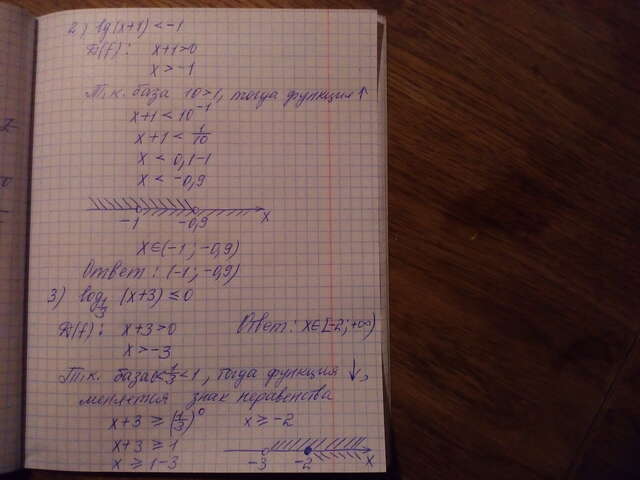 2) lg(x+1) < -1
D(f): x+1>0
x > -1
Т.к. база 10>1, тогда функция ↑
x+1 < 10⁻¹
x+1 < 1/10
x < 0,1-1
x < -0,9
-1 -0,9 x
x∈(-1; -0,9)
Ответ: (-1; -0,9)
3) log_{1/3} (x+3) ≤ 0
D(f): x+3>0
x > -3
Ответ: x∈[-2; +∞)
Т.к. база 0<1/3<1, тогда функция ↓,
меняется знак неравенства
x+3 ≥ (1/3)⁰
x+3 ≥ 1
x ≥ 1-3
x ≥ -2
-3 -2 x